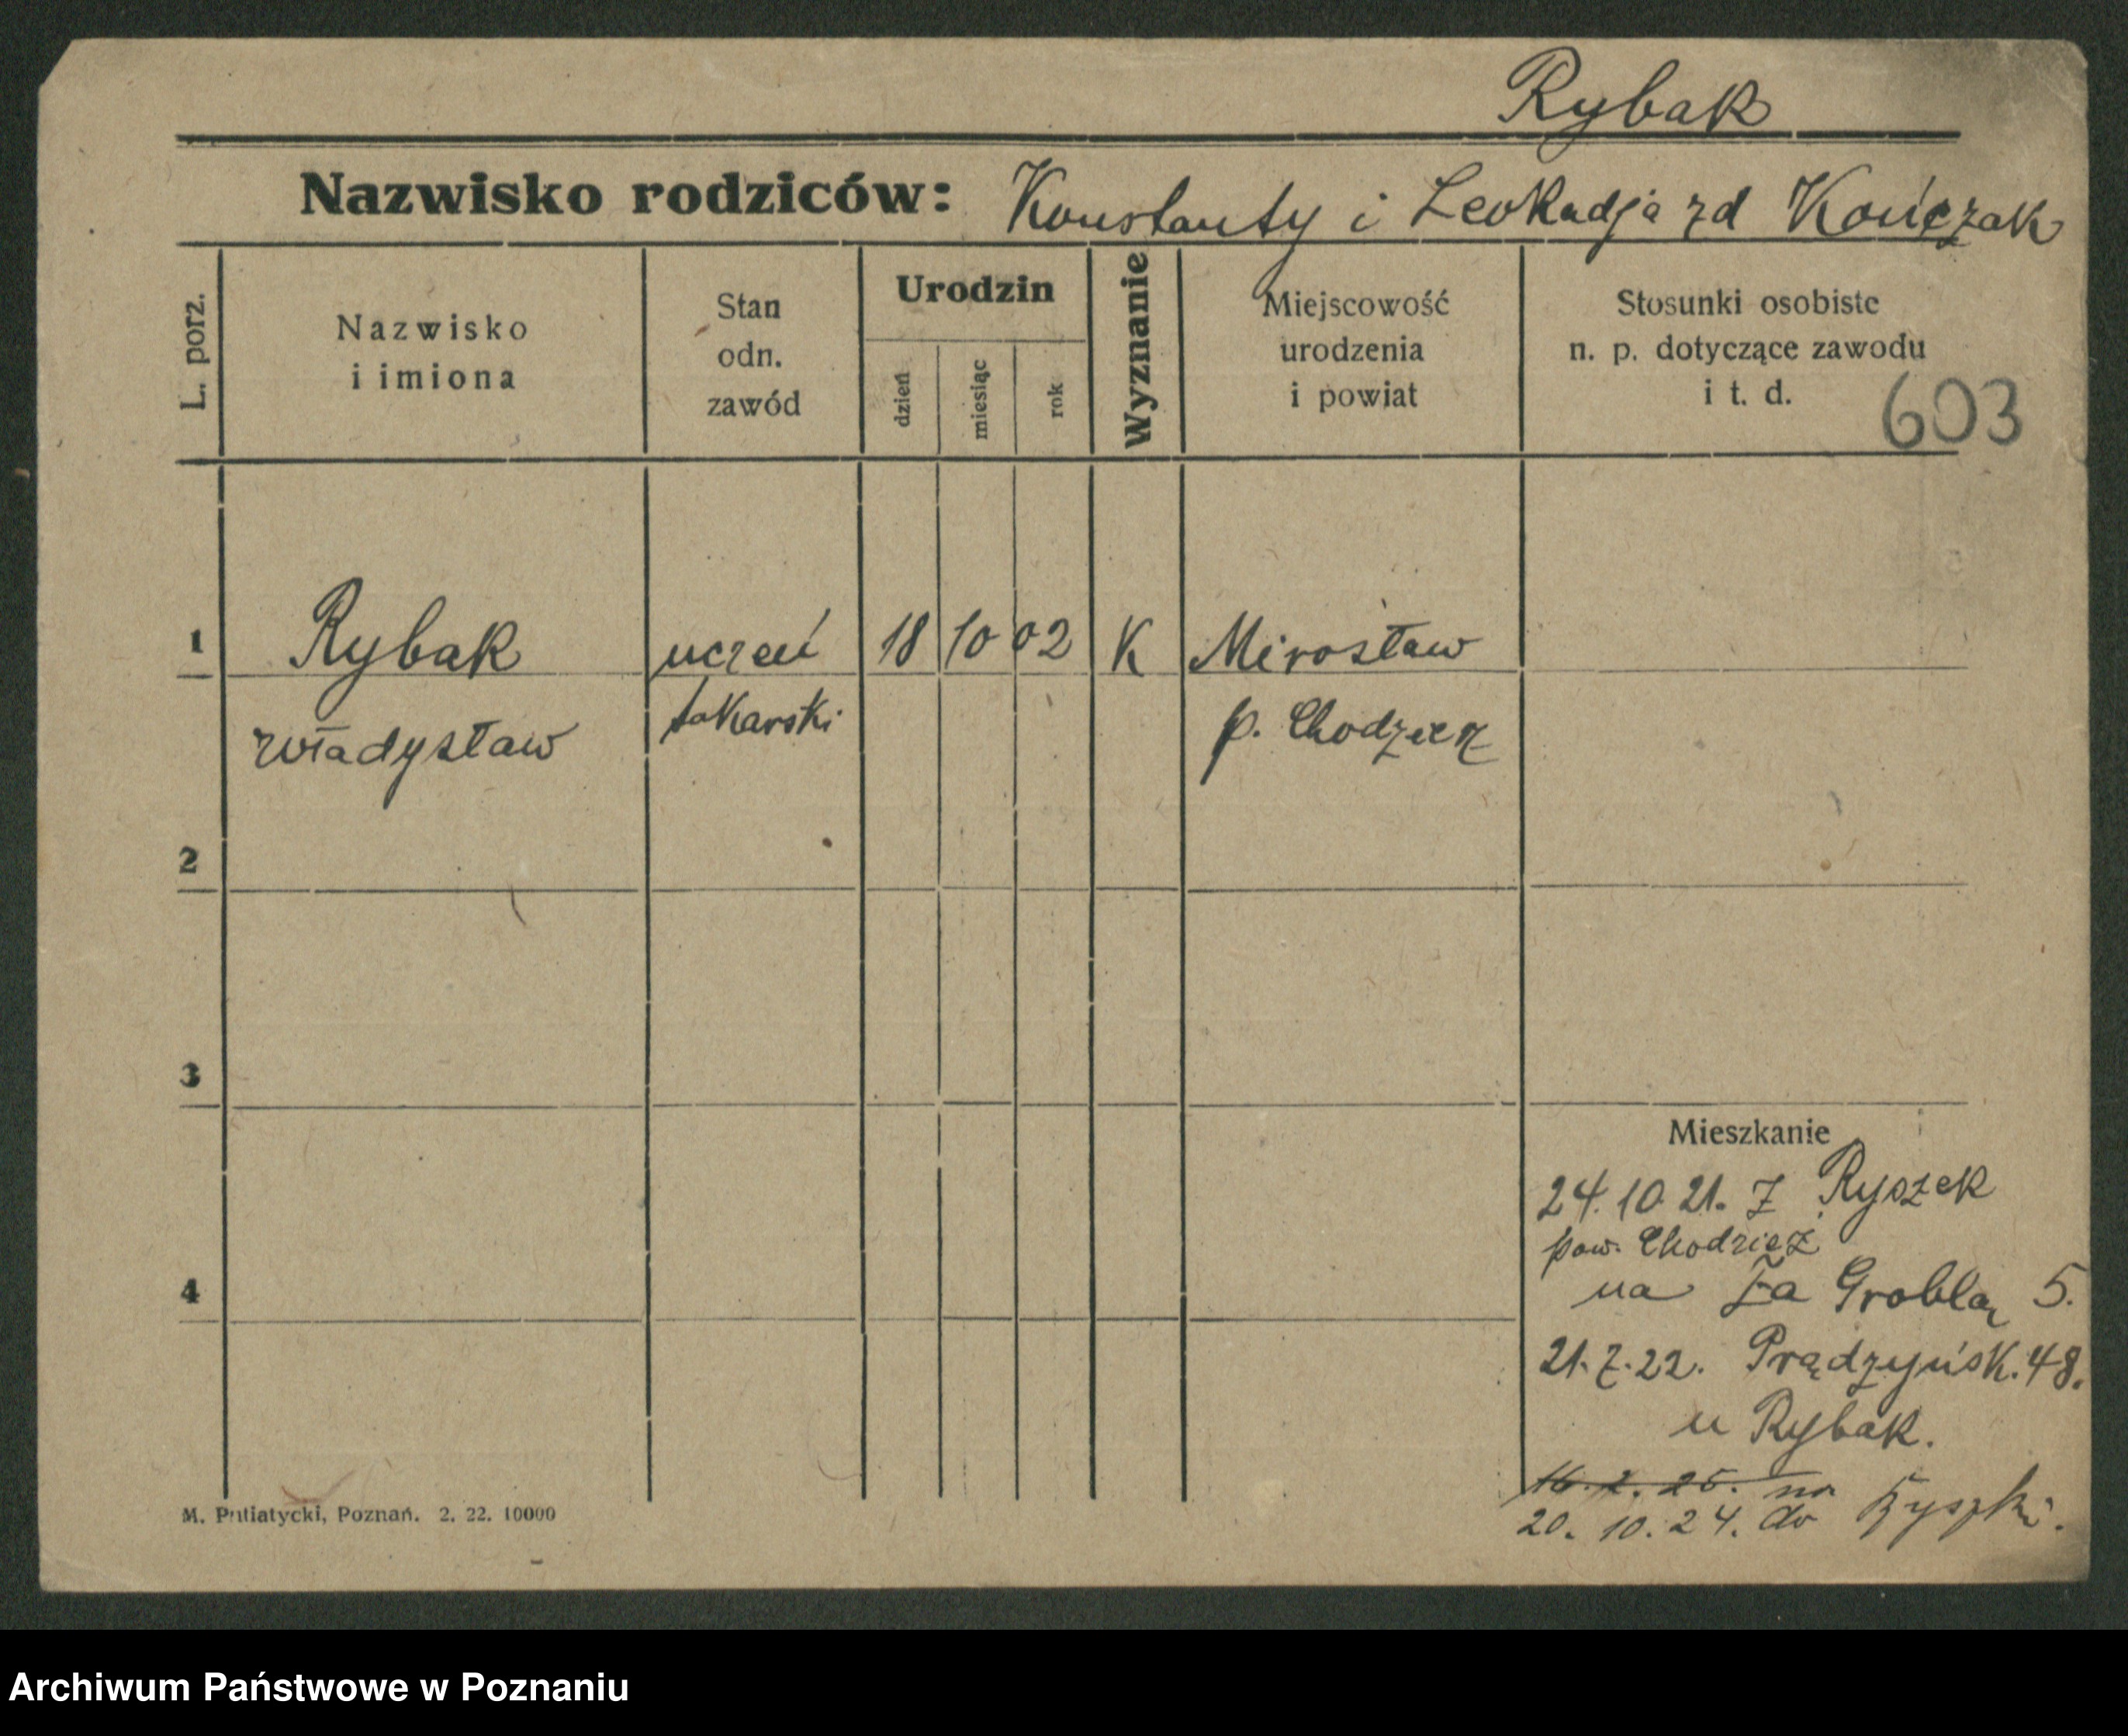 Rybak
Nazwisko rodziców: Konstanty i Leokadja zd Kończak
L. porz.
Nazwisko
i imiona
Stan
odn.
zawód
Urodzin
dzień
miesiąc
rok
Wyznanie
Miejscowość
urodzenia
i powiat
Stosunki osobiste
n. p. dotyczące zawodu
i t. d.
603
1 Rybak uczeń 18 10 02 K Mirosław
Władysław tokarski p. Chodzież
2
3
4
Mieszkanie
24.10 21. z Ryszek
pow. Chodzież
na Za Groblą 5.
21.7.22. Prądzyńsk. 48.
u Rybak.
16. 2. 25. na
20. 10. 24. do Ryszki.
M. Putiatycki, Poznań. 2. 22. 10000
Archiwum Państwowe w Poznaniu